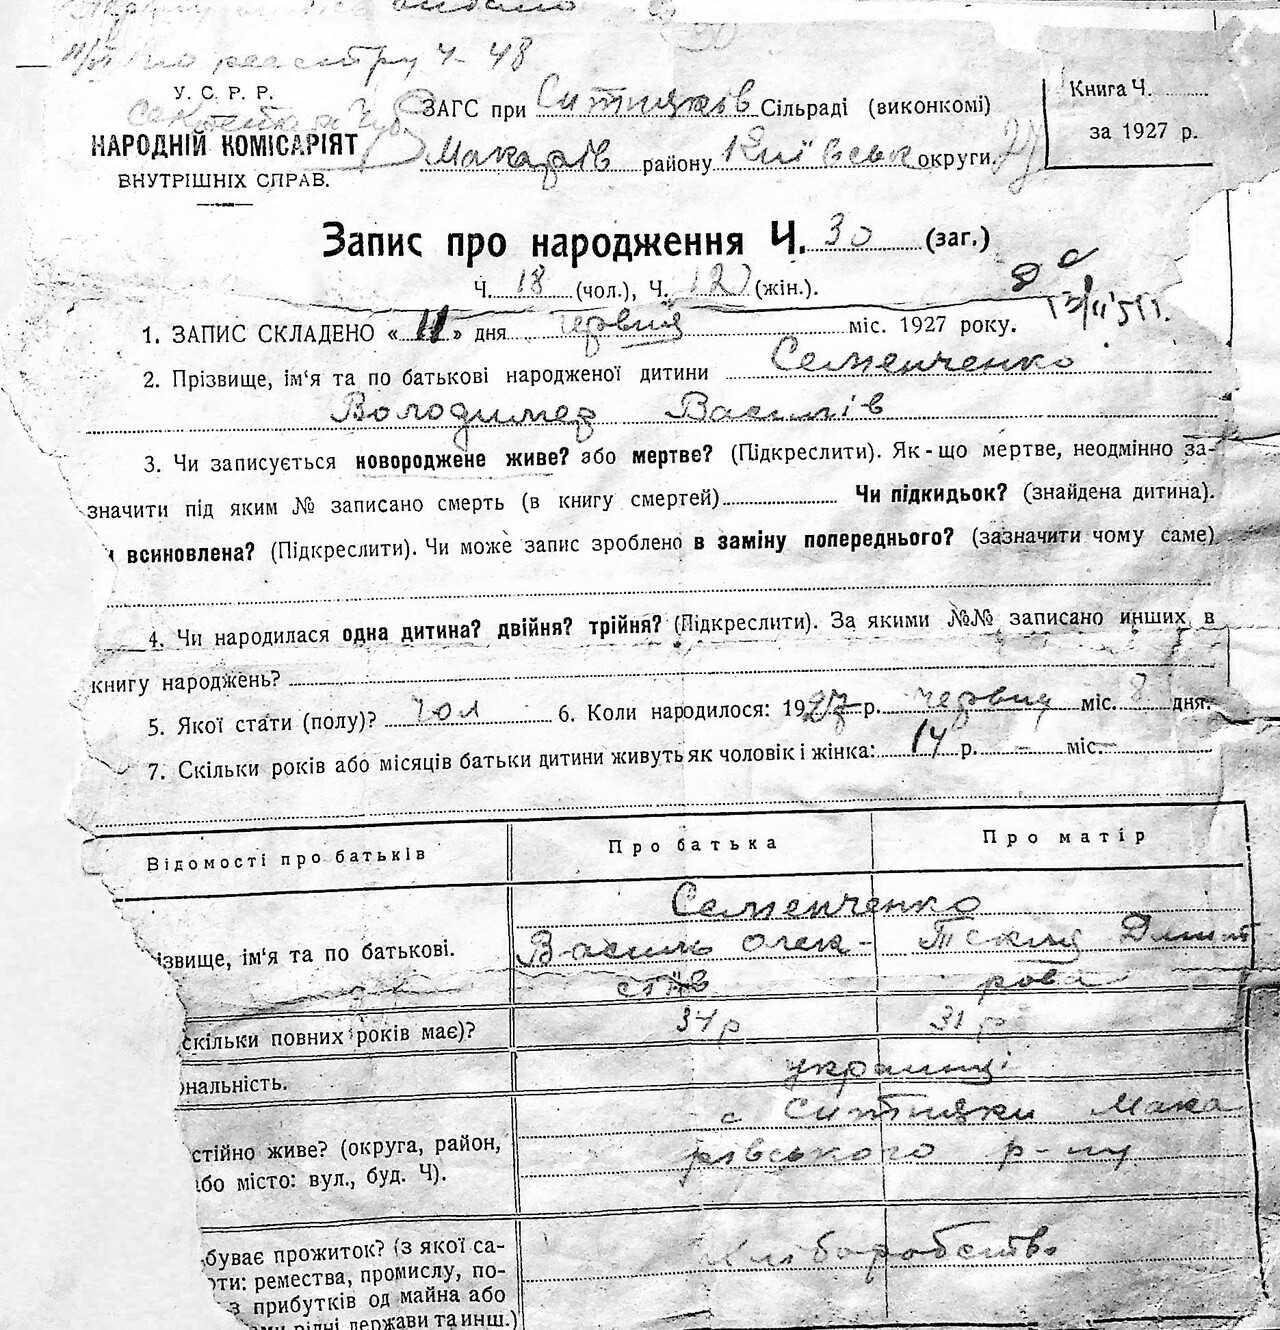 по реєстру Ч-48
У. С. Р. Р.
НАРОДНІЙ КОМІСАРІЯТ
ВНУТРІШНІХ СПРАВ.
ЗАГС при Ситняків Сільраді (виконкомі)
Макарів району Київськ округи.
Книга Ч.
за 1927 р.
Запис про народження Ч. 30 (заг.)
Ч. 18 (чол.), Ч. 12 (жін.).
1. ЗАПИС СКЛАДЕНО «11» дня червня міс. 1927 року.
2. Прізвище, ім'я та по батькові народженої дитини Семенченко
Володимер Василів
3. Чи записується новороджене живе? або мертве? (Підкреслити). Як-що мертве, неодмінно за-
значити під яким № записано смерть (в книгу смертей) Чи підкидьок? (знайдена дитина).
и всиновлена? (Підкреслити). Чи може запис зроблено в заміну попереднього? (зазначити чому саме)
4. Чи народилася одна дитина? двійня? трійня? (Підкреслити). За якими №№ записано инших в
книгу народжень?
5. Якої стати (полу)? чол 6. Коли народилося: 1927 р. червня міс. 8 дня.
7. Скільки років або місяців батьки дитини живуть як чоловік і жінка: 14 р. – міс. –
Відомості про батьків Про батька Про матір
Семенченко
ізвище, ім'я та по батькові. Василь Олек- Тскля Дмит
стїв рова
скільки повних років має)? 34 р 31 р
нальність. українці
с Ситняки Мака
стійно живе? (округа, район, рівського р-ну
бо місто: вул., буд. Ч).
буває прожиток? (з якої са- Хліборобство
оти: ремества, промислу, по-
з прибутків од майна або
рідні держави та инш.)